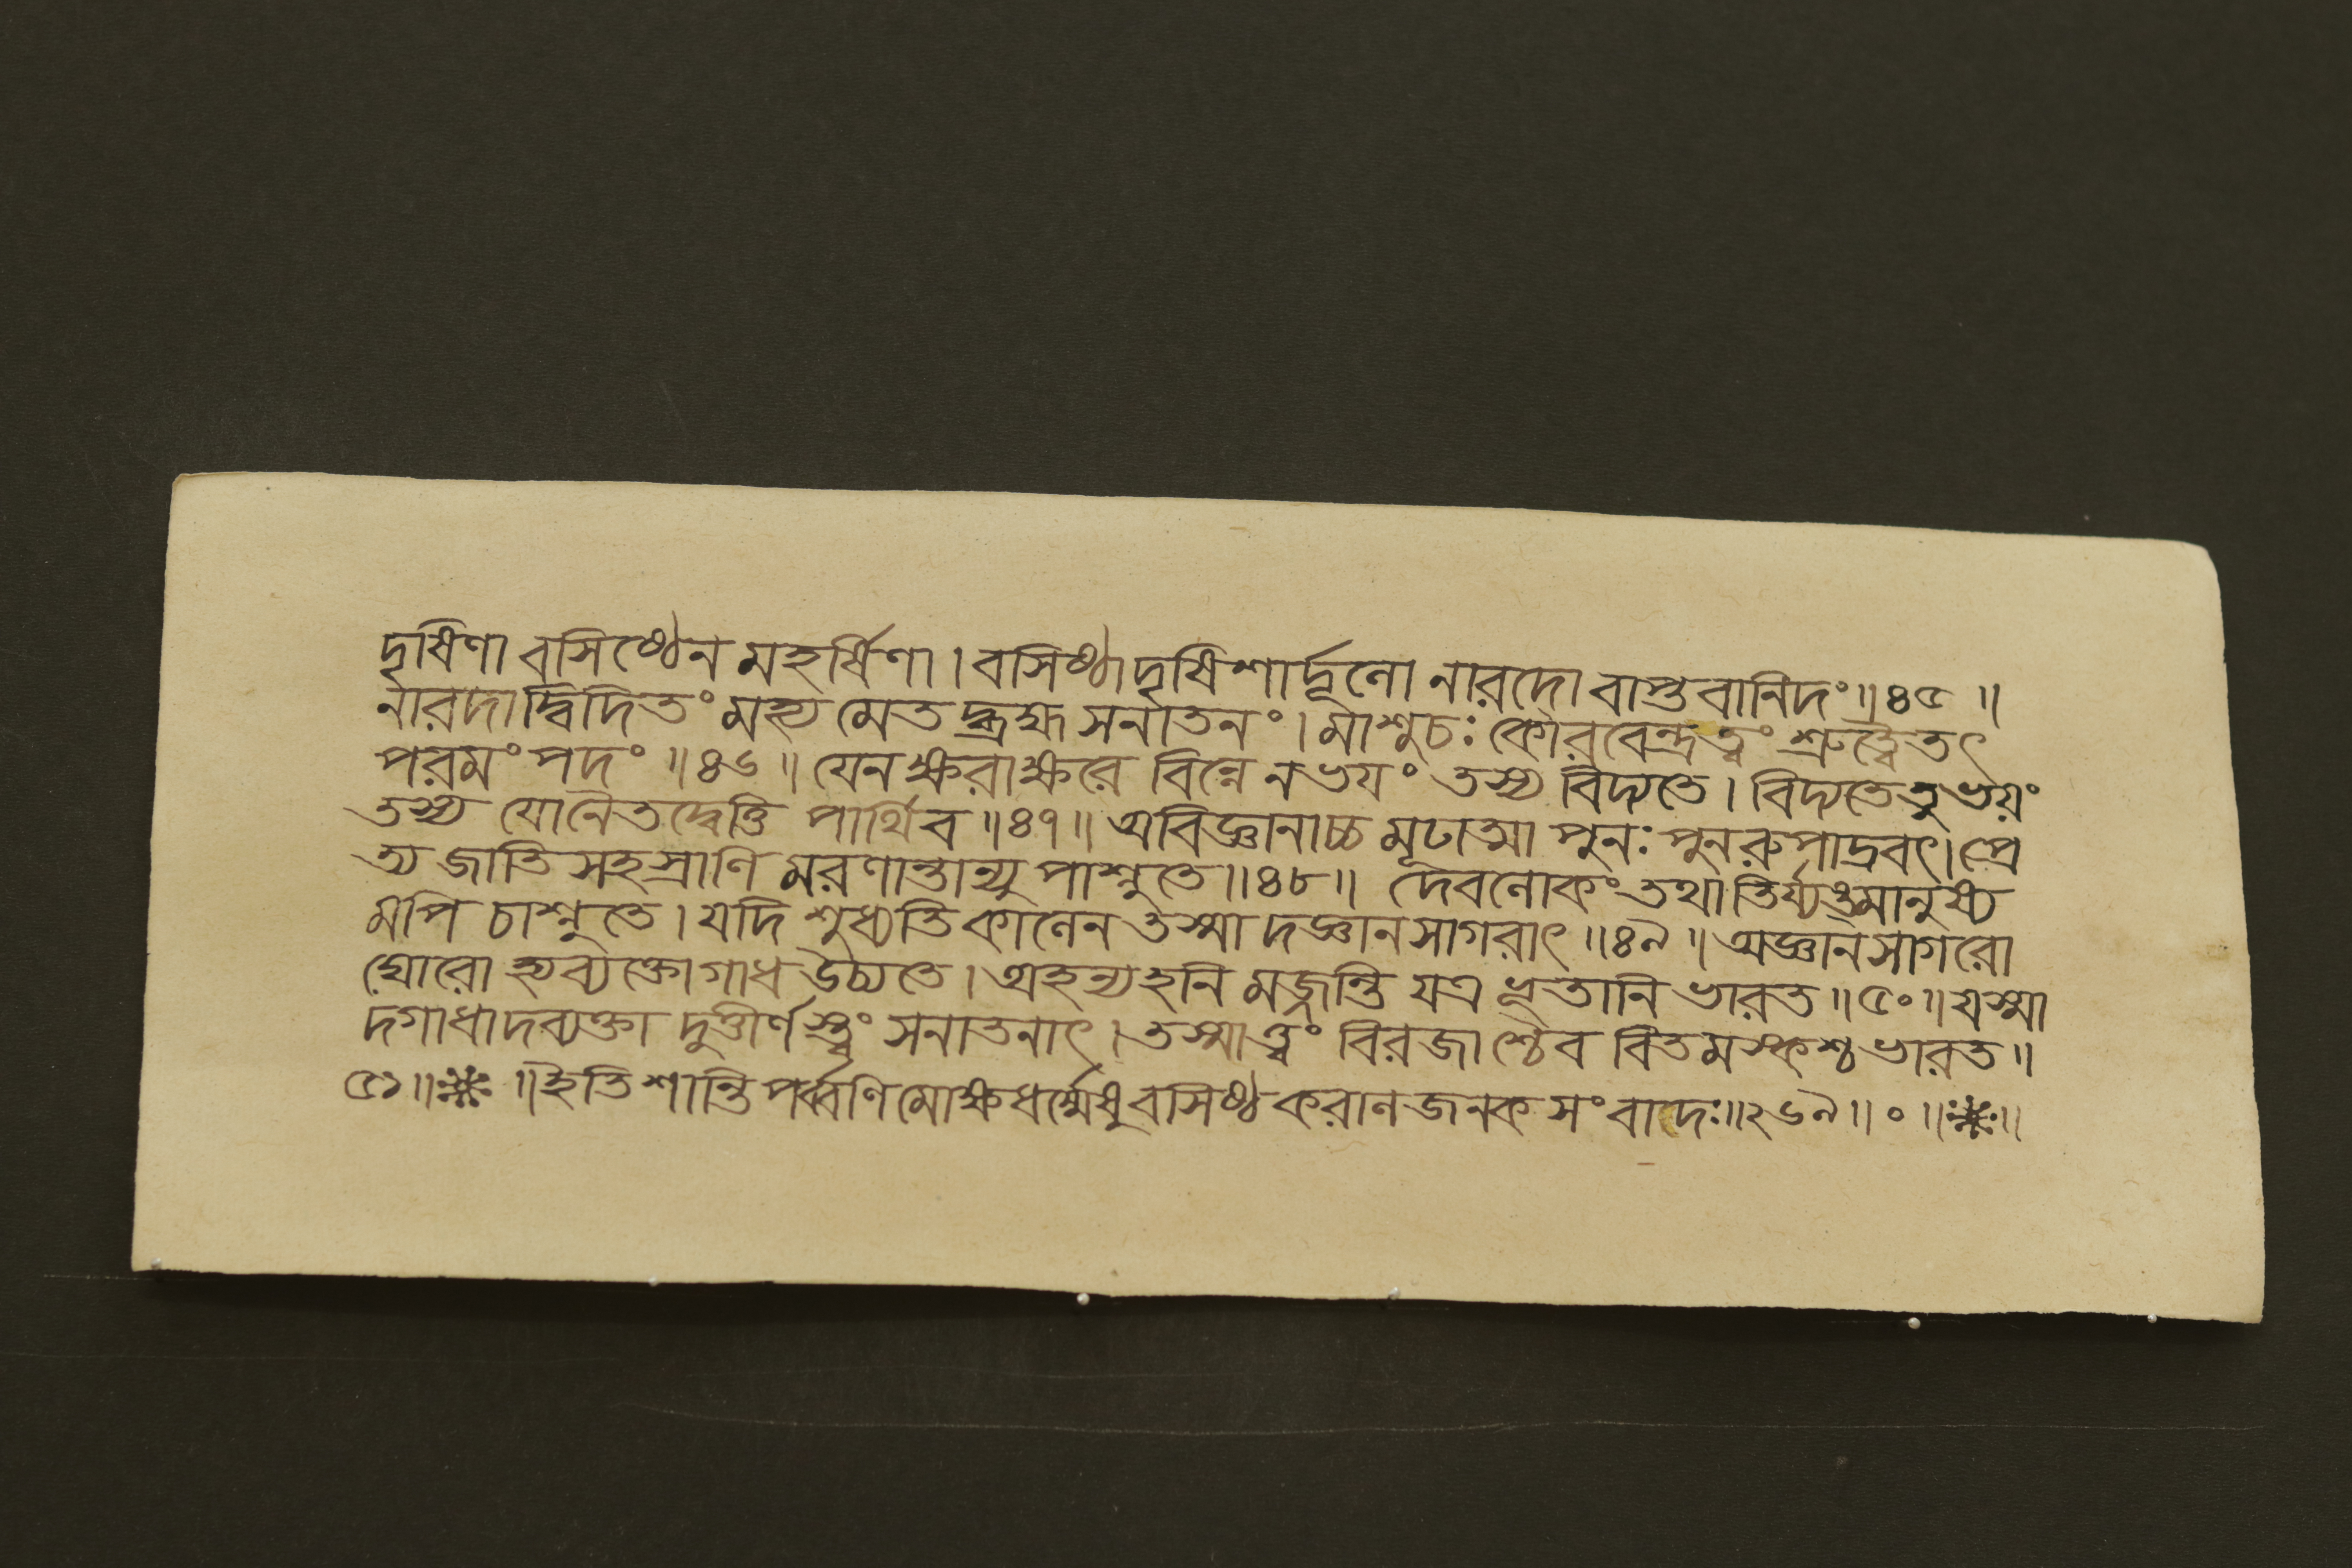 দৃষিণা বসিষ্ঠেন মহর্ষিণা । বসিষ্ঠাদৃষিশার্দূলো নারদো বাপ্তবানিদং ॥ ৪৫ ॥
নারদাদ্বিদিতং মহ্যমেতদ্ব্রহ্ম সনাতনং । মাশুচঃ কৌরবেন্দ্র ত্বং শ্রুত্বৈতৎ
পরমং পদং ॥ ৪৬ ॥ যেন ক্ষরাক্ষরে বিন্নে ন ভয়ং তস্য বিদ্যতে । বিদ্যতে তু ভয়ং
তস্য যোনৈতদ্বেত্তি পার্থিব ॥ ৪৭ ॥ অবিজ্ঞানাচ্চ মূঢাত্মা পুনঃ পুনরুপাদ্রবৎ । প্রে
ত্য জাতিসহস্রাণি মরণান্তান্যুপাশ্নুতে ॥ ৪৮ ॥ দেবলোকং তথা তির্য্যঙ্মানুষ্য
মপি চাশ্নুতে । যদি শুধ্যতি কালেন তস্মাদজ্ঞানসাগরাৎ ॥ ৪৯ ॥ অজ্ঞানসাগরো
ঘোরো হ্যব্যক্তোগাধ উচ্যতে । অহন্যহনি মজ্জন্তি যত্র ভূতানি ভারত ॥ ৫০ ॥ যস্মা
দগাধাদব্যক্তা দুত্তীর্ণস্ত্বং সনাতনাৎ । তস্মাত্ত্বং বিরজাশ্চৈব বিতমস্কশ্চ ভারত ॥
৫১ ॥ ॥ ইতি শান্তিপর্ব্বণি মোক্ষধর্ম্মেষু বসিষ্ঠকরালজনকসংবাদঃ ॥ ২৬৯ ॥ ० ॥ ॥